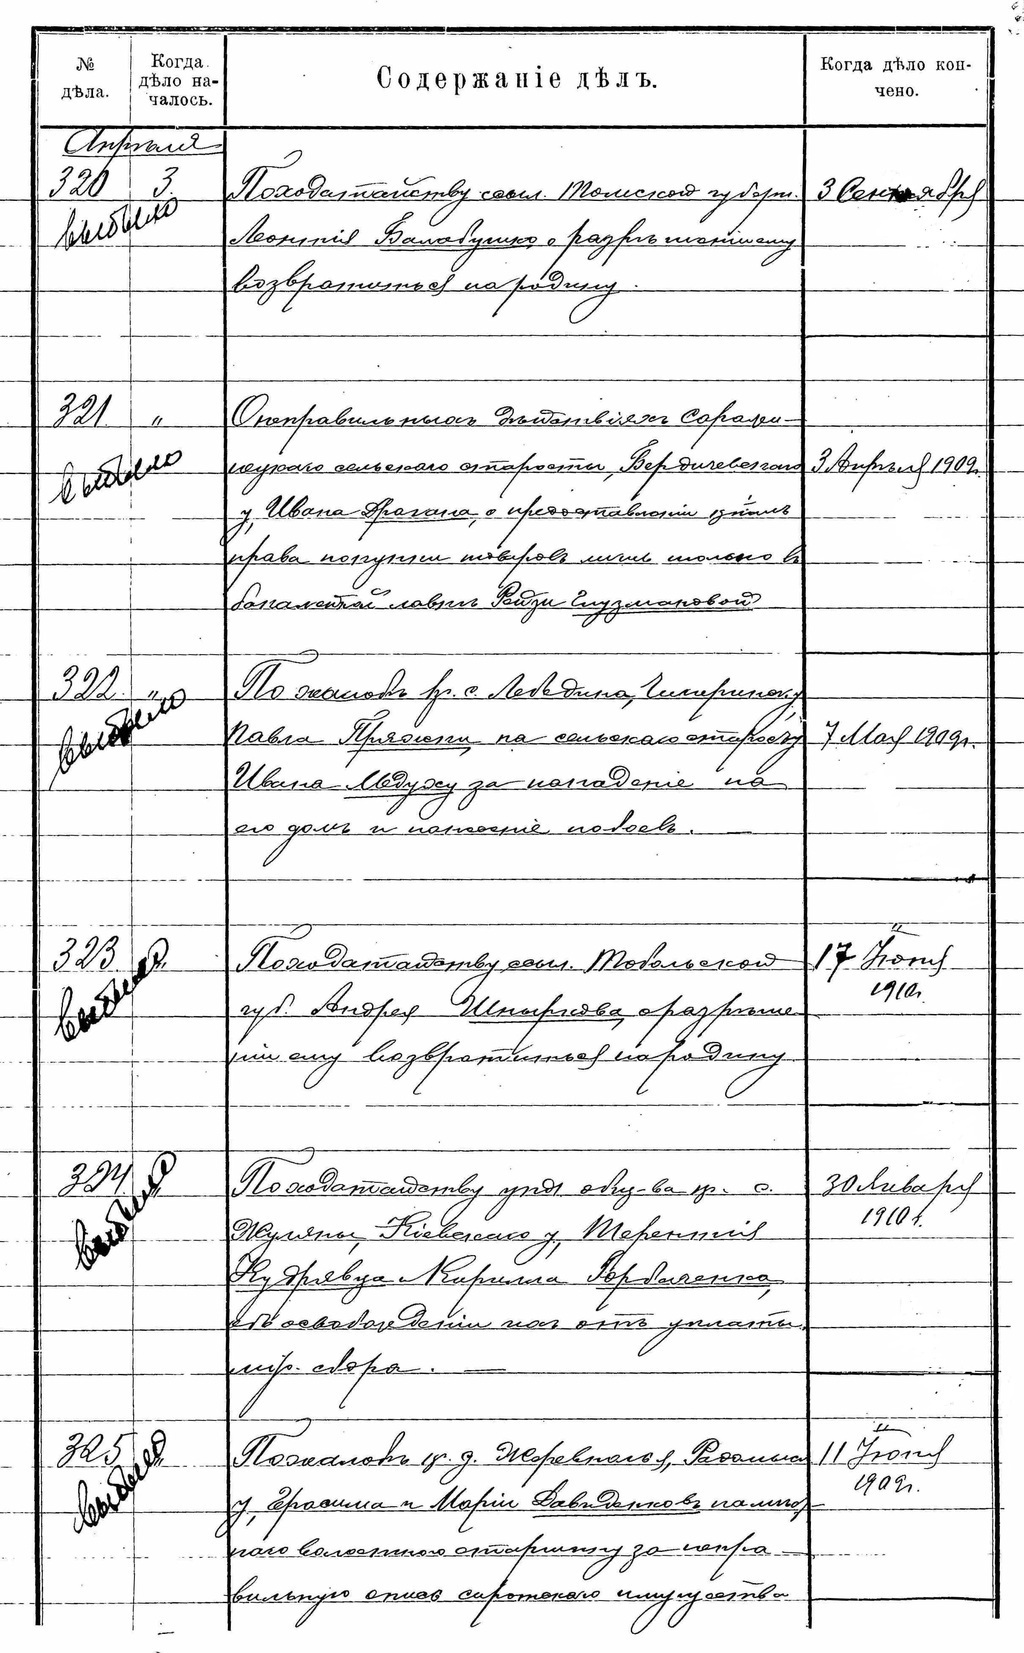 № дѣла.
Когда дѣло началось.
Содержаніе дѣлъ.
Когда дѣло кончено.
Апрѣля
320 3. По ходатайству ссыл. Томской губерн. 3 Сентября
выбыло Леонтія Балабушко о разрѣшеніи ему
возвратиться на родину.
321 „ О неправильныхъ дѣйствіяхъ
выбыло сельскаго старосты, Бердичевскаго 3 Апрѣля 1909г.
у, Ивана Драгана, о предоставленіи
права покупки товаровъ лишь только въ
бакалейной лавкѣ Рейзи Глузмановой
322. „ По жалобѣ кр. с. Лебедина, Чигиринск. у,
выбыло Павла Пряжки, на сельскаго старосту 7 Мая 1909г.
Ивана Медуху за нападеніе на
его домъ и нанесеніе побоевъ.
323 По ходатайству ссыл. Тобольской 17 Іюня
выбыло губ. Андрея Шныркова, о разрѣше- 1910г.
ніи ему возвратиться на родину
324 По ходатайству упол. общ-ва кр. с. 30 Января
выбыло Жуляны, Кіевскаго у, Терентія 1910 г.
Кудрявца и Кирилла Горбаченка,
объ освобожденіи ихъ отъ уплаты
мір. сбора.
325 По жалобѣ кр. д. Жеревполья, Радомыс. 11 Іюня
выбыло у, Герасима и Маріи Давиденковъ на мѣст- 1909г.
наго волостного старшину за непра-
вильную опись сиротскаго имущества